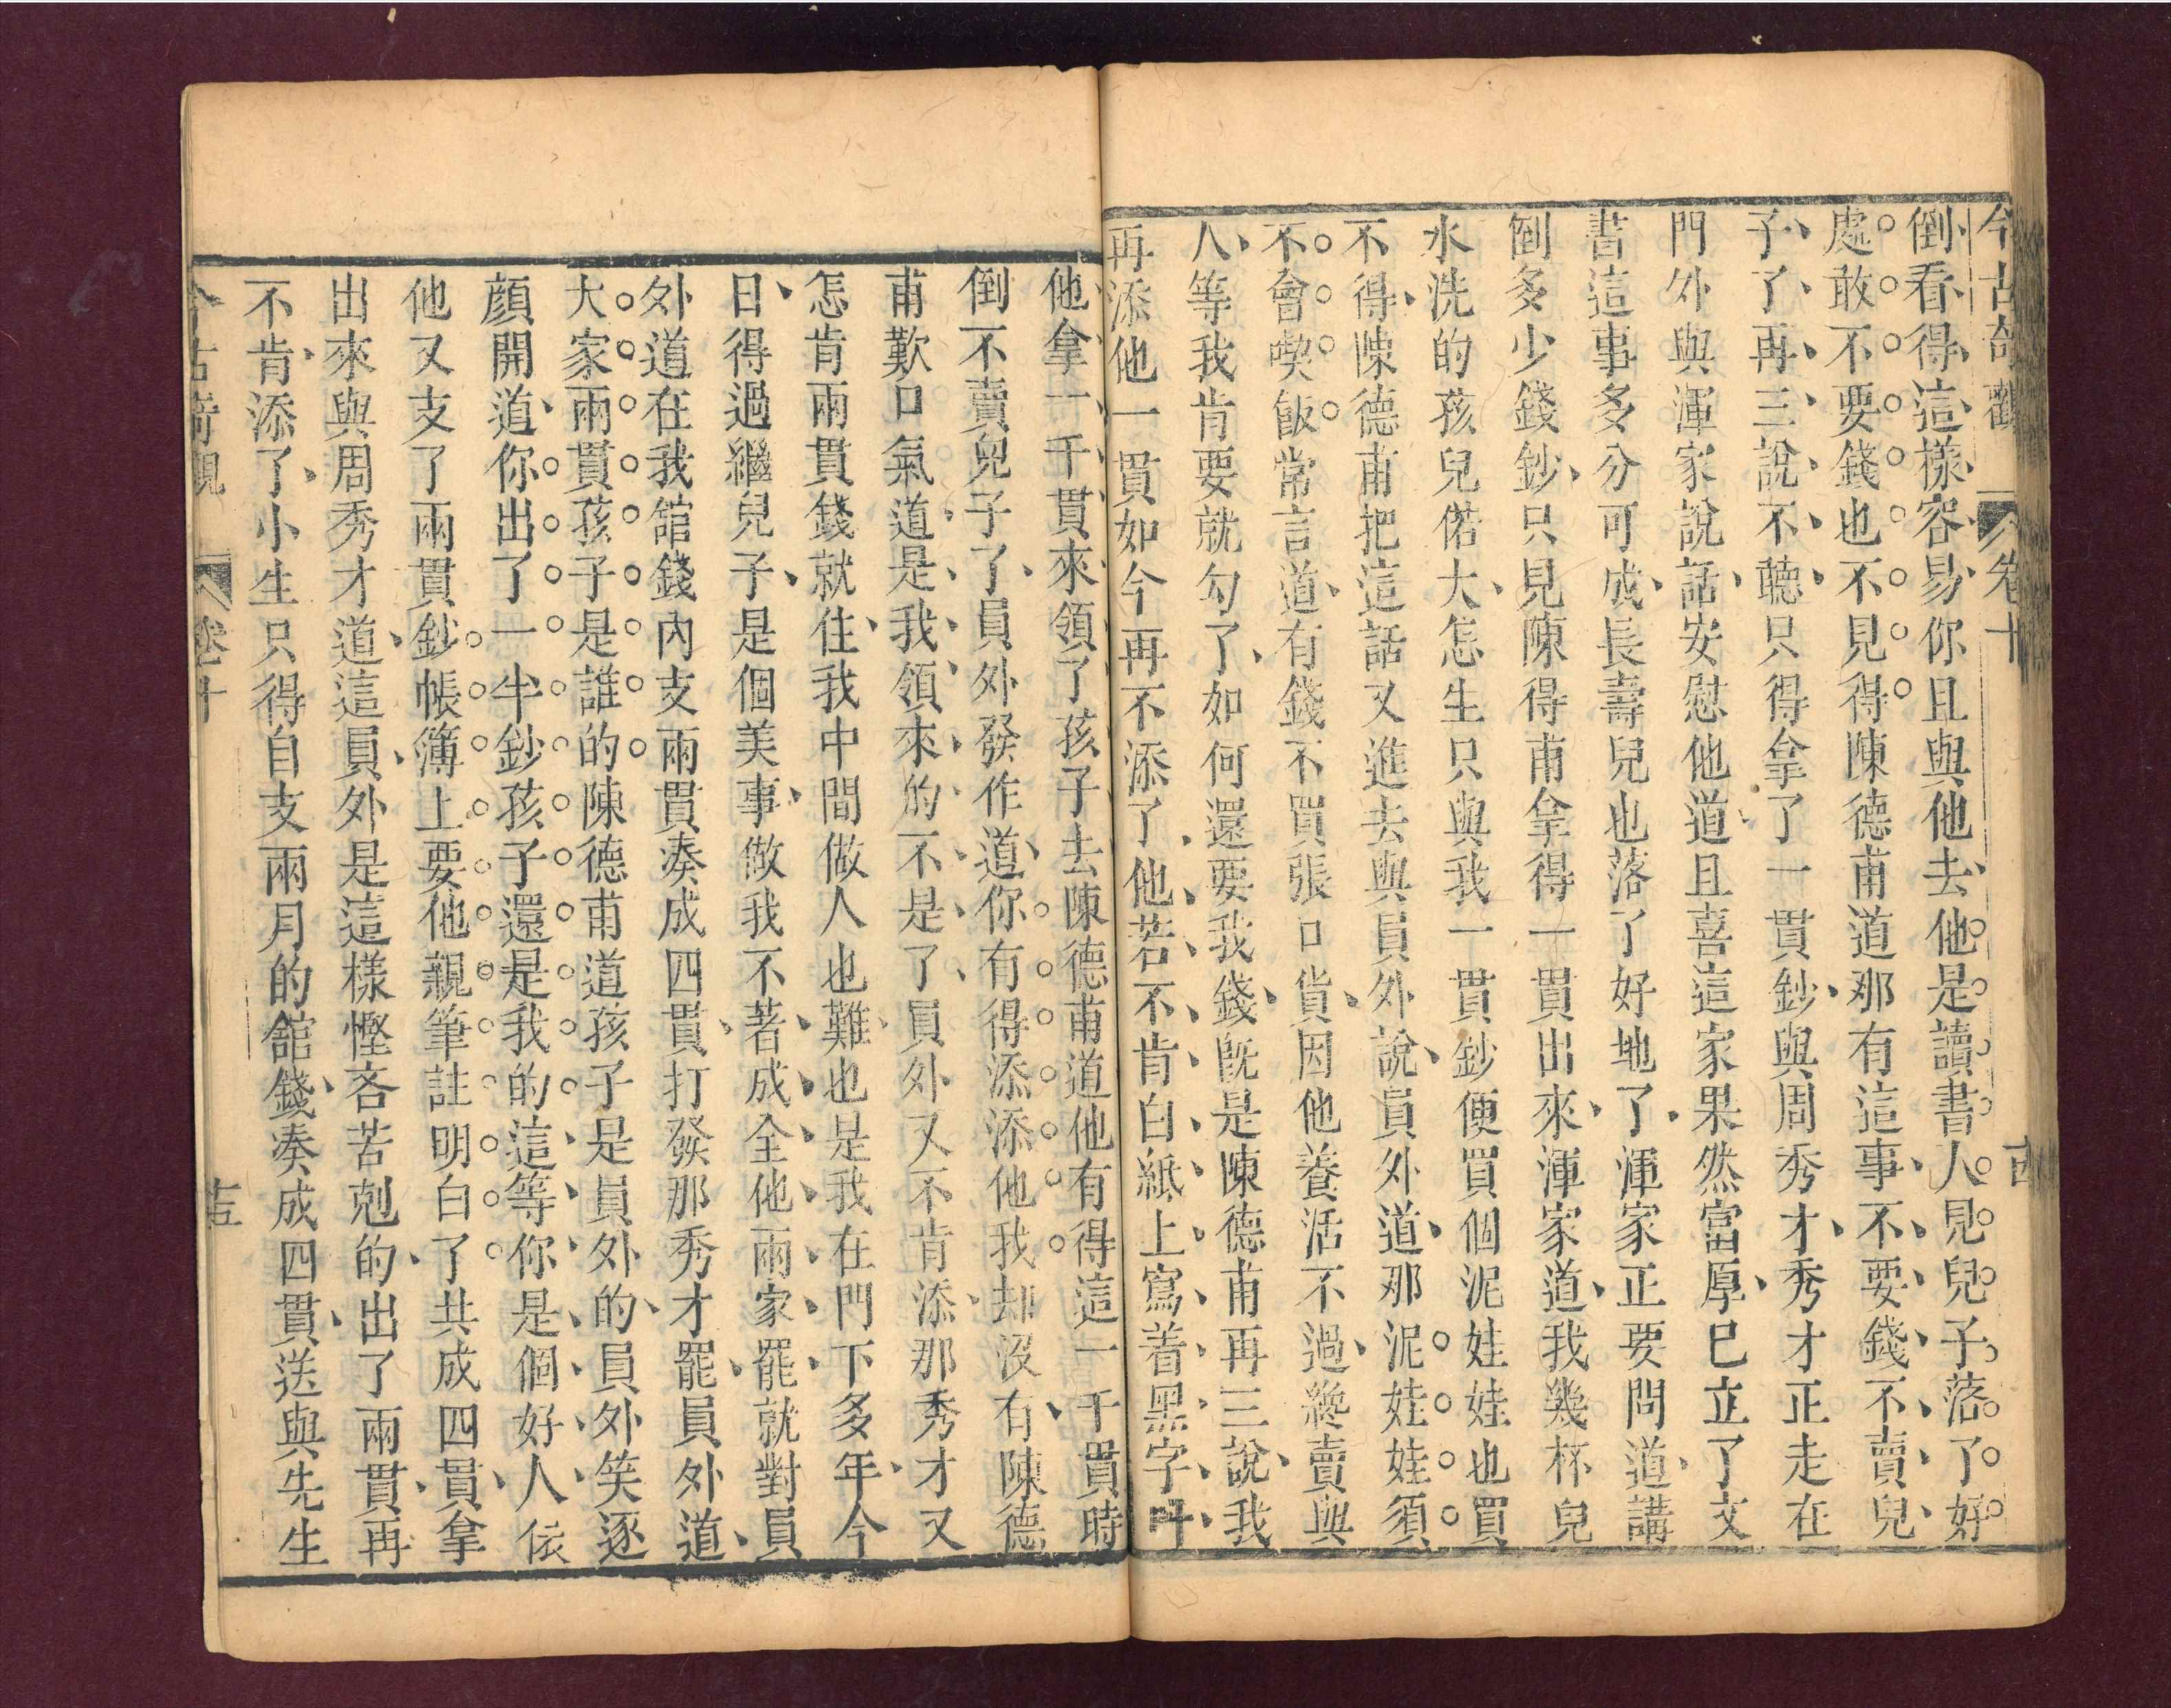 今古奇觀 卷十
倒看得這樣容易你且與他去他是讀書人見兒子落了好
處敢不要錢也不見得陳德甫道那有這事不要錢不賣兒
子了再三說不聽只得拿了一貫鈔與周秀才秀才正走在
門外與渾家說話安慰他道且喜這家果然富厚已立了文
書這事多分可成長壽兒也落了好地了渾家正要問道講
倒多少錢鈔只見陳得甫拿得一貫出來渾家道我幾杯兒
水洗的孩兒偌大怎生只與我一貫鈔便買個泥娃娃也買
不得陳德甫把這話又進去與員外說員外道那泥娃娃須
不會喫飯常言道有錢不買張口貨因他養活不過纔賣與
人等我肯要就勾了如何還要我錢既是陳德甫再三說我
再添他一貫如今再不添了他若不肯白紙上寫着黑字叫
他拿一千貫來領了孩子去陳德甫道他有得這一千貫時
倒不賣兒子了員外發作道你有得添添他我却沒有陳德
甫歎口氣道是我領來的不是了員外又不肯添那秀才又
怎肯兩貫錢就住我中間做人也難也是我在門下多年今
日得過繼兒子是個美事做我不著成全他兩家罷就對員
外道在我館錢內支兩貫湊成四貫打發那秀才罷員外道
大家兩貫孩子是誰的陳德甫道孩子是員外的員外笑逐
顏開道你出了一半鈔孩子還是我的這等你是個好人依
他又支了兩貫鈔帳簿上要他親筆註明白了共成四貫拿
出來與周秀才道這員外是這樣慳吝苦剋的出了兩貫再
不肯添了小生只得自支兩月的館錢湊成四貫送與先生
今古奇觀 卷十